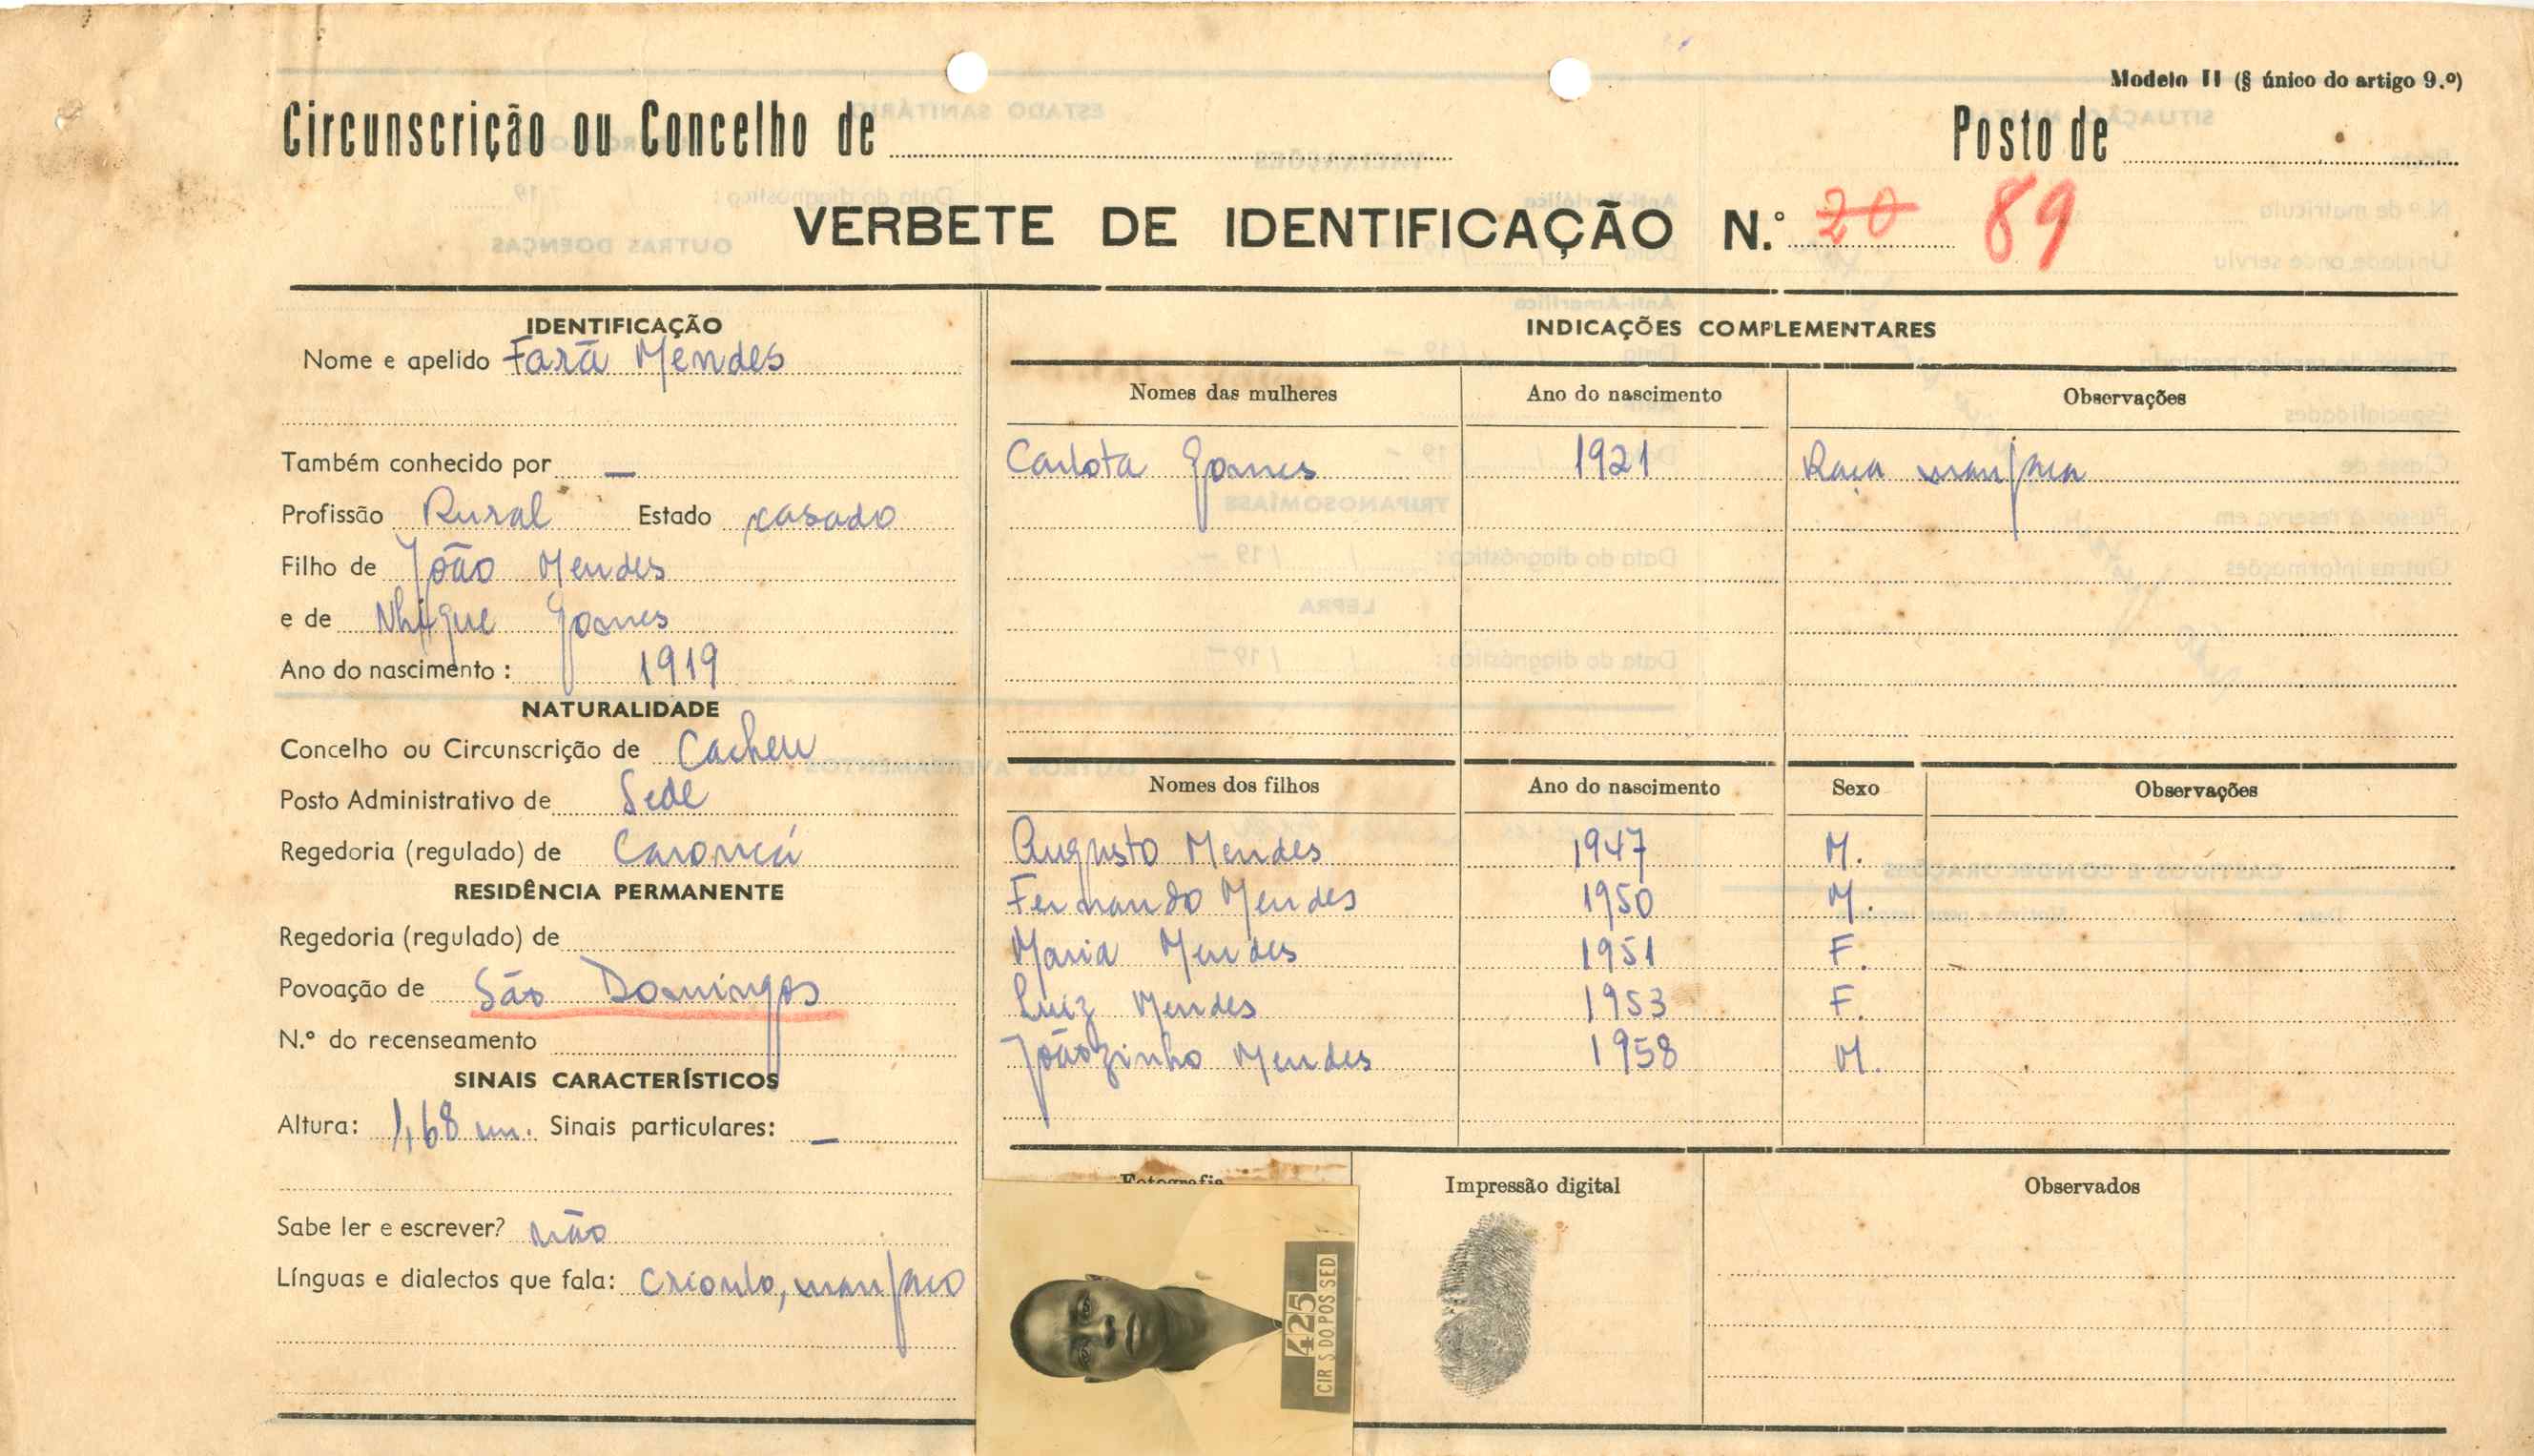 Modelo II (§ único do artigo 9.º)
Circunscrição ou Concelho de
Posto de
VERBETE DE IDENTIFICAÇÃO N.º 20 89
IDENTIFICAÇÃO
Nome e apelido Farã Mendes
Também conhecido por —
Profissão Rural Estado casado
Filho de João Mendes
e de Gomes
Ano do nascimento: 1919
NATURALIDADE
Concelho ou Circunscrição de Cacheu
Posto Administrativo de Sede
Regedoria (regulado) de
RESIDÊNCIA PERMANENTE
Regedoria (regulado) de
Povoação de São Domingos
N.º do recenseamento
SINAIS CARACTERÍSTICOS
Altura: 1,68 m. Sinais particulares: —
Sabe ler e escrever? não
Línguas e dialectos que fala: Crioulo, manjaco
INDICAÇÕES COMPLEMENTARES
Nomes das mulheres Ano do nascimento Observações
Carlota Gomes 1921 Raça manjaca
Nomes dos filhos Ano do nascimento Sexo Observações
Augusto Mendes 1947 M.
Fernando Mendes 1950 M.
Maria Mendes 1951 F.
Luiz Mendes 1953 F.
Joãozinho Mendes 1958 M.
Fotografia Impressão digital Observados
425
CIR S DO POS SED